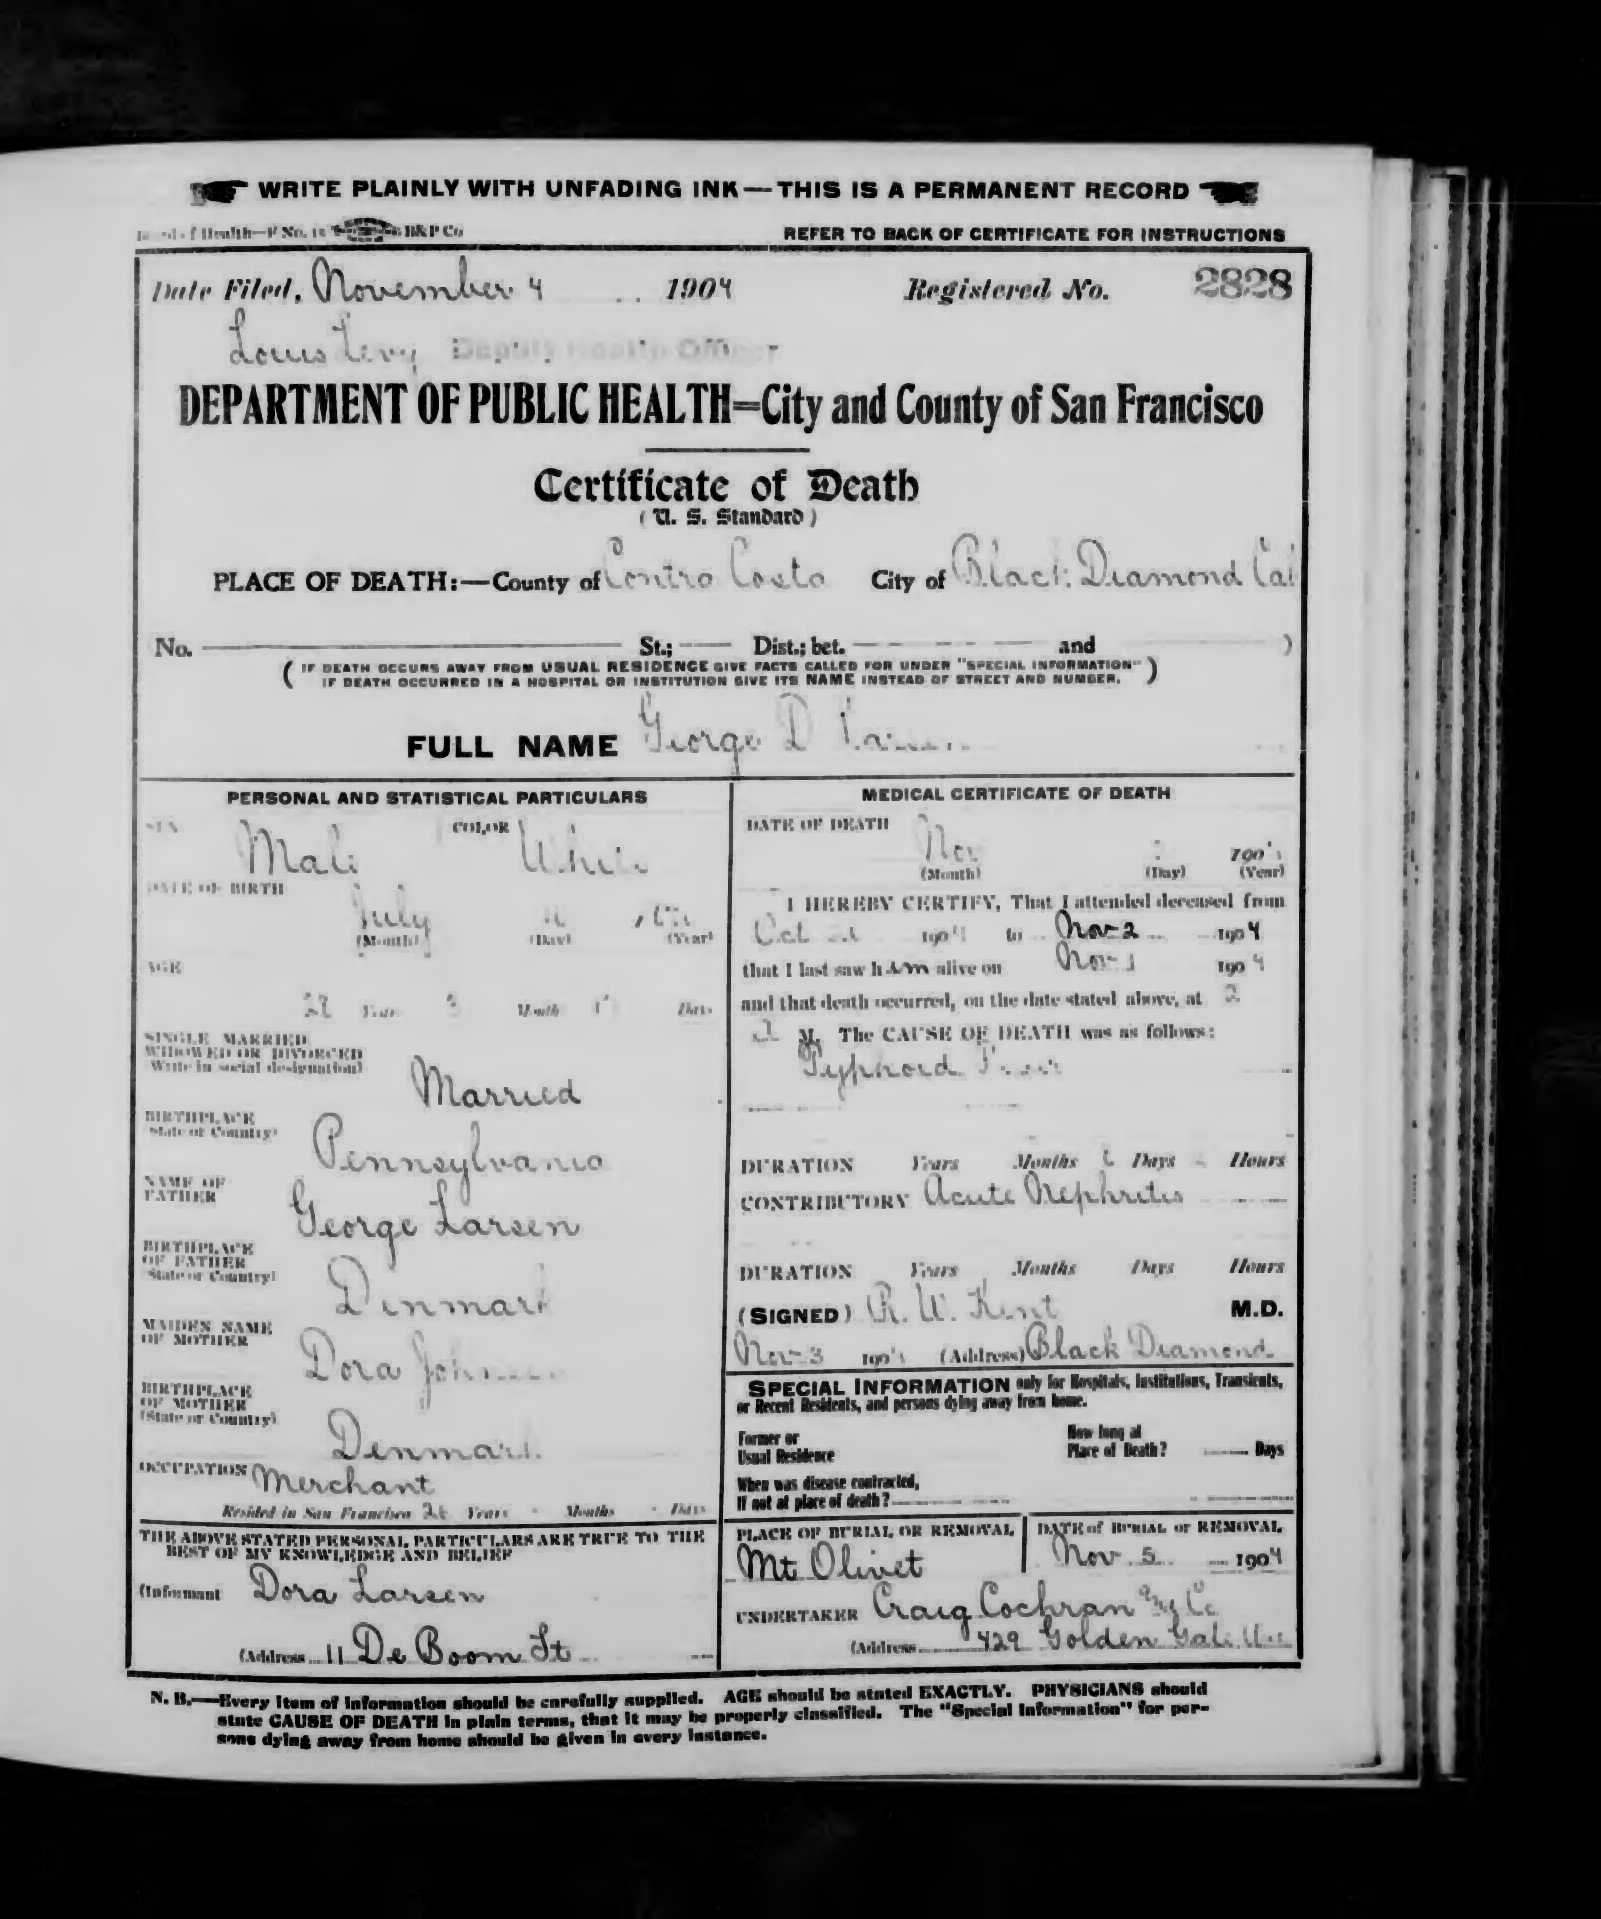 WRITE PLAINLY WITH UNFADING INK — THIS IS A PERMANENT RECORD
of Health—F No. B&P Co
REFER TO BACK OF CERTIFICATE FOR INSTRUCTIONS
Date Filed, November 4 1904 Registered No. 2828
Louis Levy Deputy Health Officer
DEPARTMENT OF PUBLIC HEALTH=City and County of San Francisco
Certificate of Death
( U. S. Standard )
PLACE OF DEATH:—County of Contra Costa City of Black Diamond Cal
No. St.; Dist.; bet. and )
( IF DEATH OCCURS AWAY FROM USUAL RESIDENCE GIVE FACTS CALLED FOR UNDER "SPECIAL INFORMATION"
IF DEATH OCCURRED IN A HOSPITAL OR INSTITUTION GIVE ITS NAME INSTEAD OF STREET AND NUMBER. )
FULL NAME George D Larsen
PERSONAL AND STATISTICAL PARTICULARS
SEX Male COLOR White
DATE OF BIRTH
July
(Month) (Day) (Year)
AGE
Years 3 Months Days
SINGLE MARRIED
WIDOWED OR DIVORCED
(Write in social designation)
Married
BIRTHPLACE
(State or Country)
Pennsylvania
NAME OF
FATHER
George Larsen
BIRTHPLACE
OF FATHER
(State or Country)
Denmark
MAIDEN NAME
OF MOTHER
Dora
BIRTHPLACE
OF MOTHER
(State or Country)
Denmark
OCCUPATION Merchant
Resided in San Francisco Years - Months - Days
THE ABOVE STATED PERSONAL PARTICULARS ARE TRUE TO THE
BEST OF MY KNOWLEDGE AND BELIEF
(Informant Dora Larsen
(Address 11 De Boom St
MEDICAL CERTIFICATE OF DEATH
DATE OF DEATH
Nov 1904
(Month) (Day) (Year)
I HEREBY CERTIFY, That I attended deceased from
Oct 1904 to Nov 2 1904
that I last saw him alive on Nov 1 1904
and that death occurred, on the date stated above, at 2
M. The CAUSE OF DEATH was as follows:
Typhoid Fever
DURATION Years Months Days Hours
CONTRIBUTORY Acute Nephritis
DURATION Years Months Days Hours
(SIGNED) R. W. Kent M.D.
Nov 3 1904 (Address) Black Diamond
SPECIAL INFORMATION only for Hospitals, Institutions, Transients,
or Recent Residents, and persons dying away from home.
Former or
Usual Residence
How long at
Place of Death? Days
When was disease contracted,
If not at place of death?
PLACE OF BURIAL OR REMOVAL
Mt Olivet
DATE of BURIAL or REMOVAL
Nov 5 1904
UNDERTAKER Craig Cochran & Co
(Address 429 Golden Gate Ave
N. B.—Every item of information should be carefully supplied. AGE should be stated EXACTLY. PHYSICIANS should
state CAUSE OF DEATH in plain terms, that it may be properly classified. The "Special Information" for per-
sons dying away from home should be given in every instance.